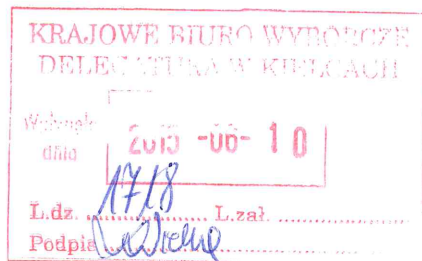 KRAJOWE BIURO WYBORCZE
DELEGATURA W KIELCACH
Wpłynęło
dnia 2015 -06- 10
L.dz. 1718 L.zał.
Podpis